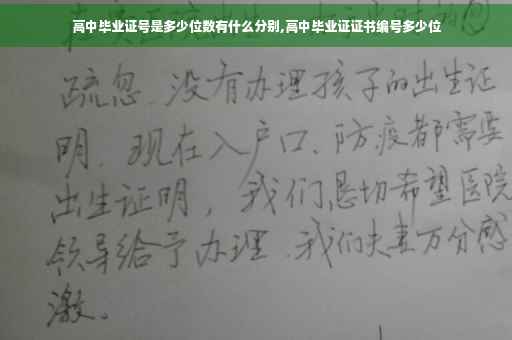 高中毕业证号是多少位数有什么分别,高中毕业证证书编号多少位
疏忽、没有办理孩子的出生证
明、现在入户口、防疫都需要
出生证明，我们恳切希望医院
领导给予办理、我们夫妻万分感
激。